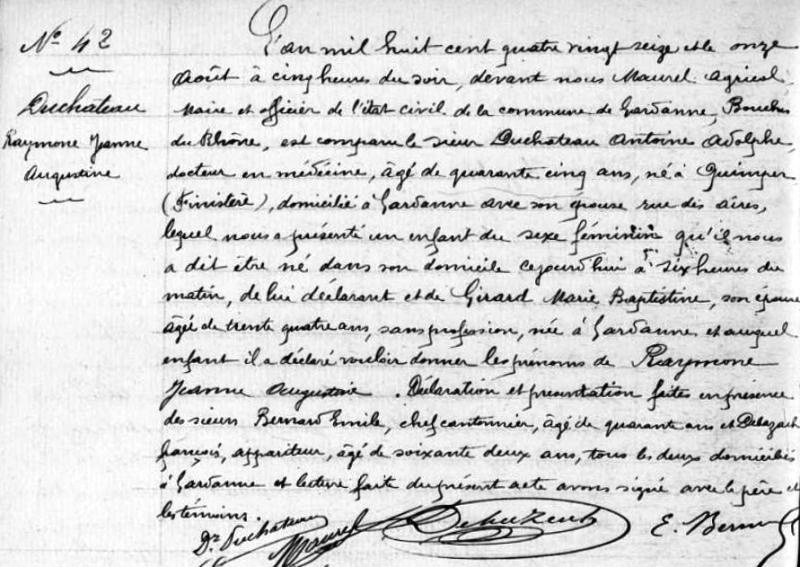 N° 42
Duchateau
Raymone Jeanne
Augustine
L'an mil huit cent quatre vingt seize et le onze
Août à cinq heures du soir, devant nous Maurel Agricol
Maire et officier de l'état civil de la commune de Gardanne, Bouches
du Rhône, est comparu le sieur Duchateau Antoine Adolphe,
docteur en médecine, âgé de quarante cinq ans, né à Quimper
(Finistère), domicilié à Gardanne avec son épouse rue des aires,
lequel nous a présenté un enfant du sexe féminin qu'il nous
a dit être né dans son domicile cejourd'hui à six heures du
matin, de lui déclarant et de Girard Marie Baptistine, son épouse
âgé de trente quatre ans, sans profession, née à Gardanne et auquel
enfant il a déclaré vouloir donner les prénoms de Raymone
Jeanne Augustine. Déclaration et présentation faites en présence
des sieurs Bernard Emile, chef cantonnier, âgé de quarante ans et
françois, appariteur, âgé de soixante deux ans, tous les deux domiciliés
à Gardanne et lecture fait du présent acte avons signé avec le père et
les témoins.
Dr Duchateau Maurel E. Bernard